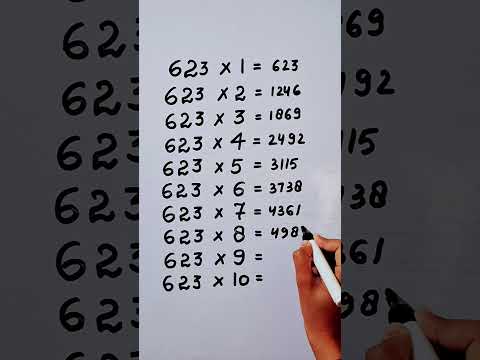 623 x 1 = 623
623 x 2 = 1246
623 x 3 = 1869
623 x 4 = 2492
623 x 5 = 3115
623 x 6 = 3738
623 x 7 = 4361
623 x 8 = 498
623 x 9 =
623 x 10 =